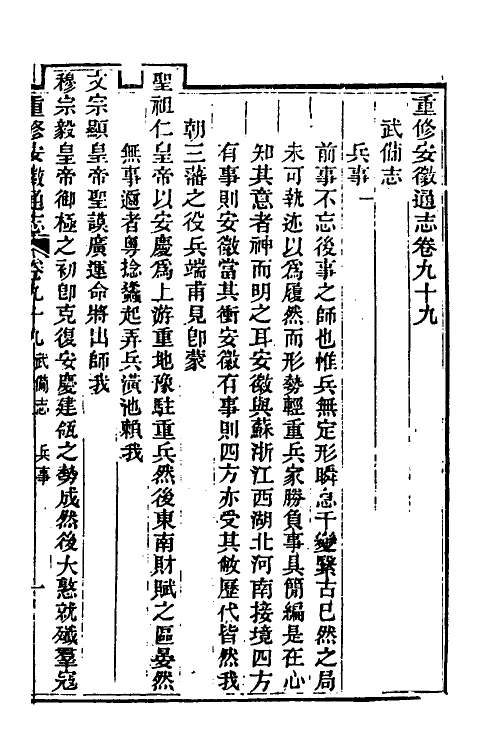 重修安徽通志卷九十九
武備志
兵事一
前事不忘後事之師也惟兵無定形瞬息千變緊古已然之局
未可執迹以爲履然而形勢輕重兵家勝負事具簡編是在心
知其意者神而明之耳安徽與蘇浙江西湖北河南接境四方
有事則安徽當其衝安徽有事則四方亦受其敝歷代皆然我
朝三藩之役兵端甫見卽蒙
聖祖仁皇帝以安慶爲上游重地豫駐重兵然後東南財賦之區晏然
無事邇者粵捻蠭起弄兵潢池賴我
文宗顯皇帝聖謨廣運命將出師我
穆宗毅皇帝御極之初卽克復安慶建瓴之勢成然後大憝就殲羣寇
重修安徽通志 卷九十九 武備志 兵事 一